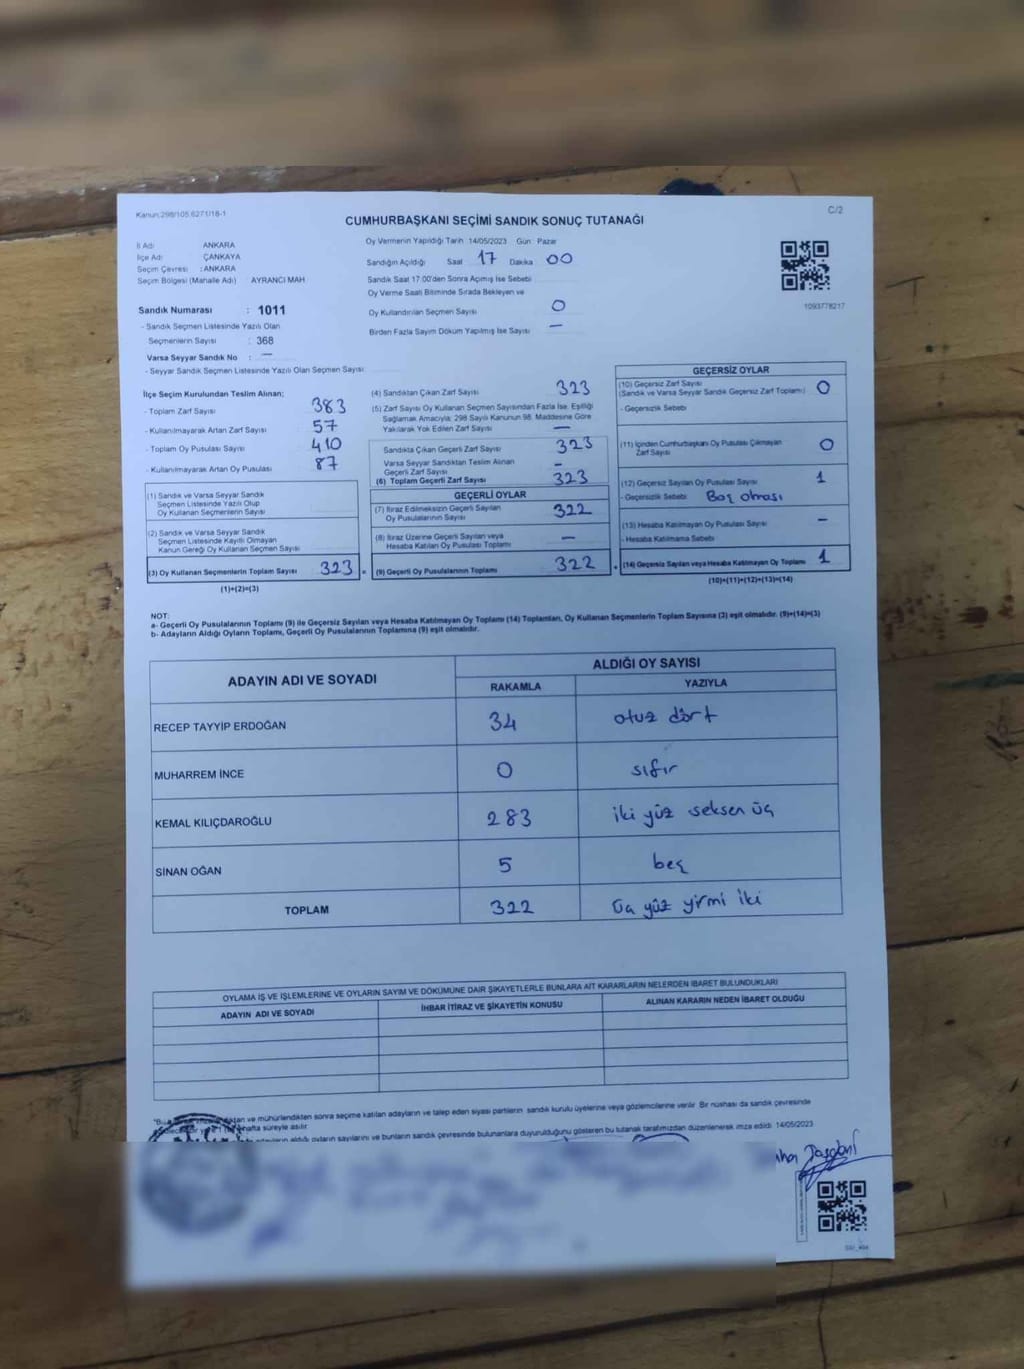 Kanun:298/105,6271/18-1
C/2
CUMHURBAŞKANI SEÇİMİ SANDIK SONUÇ TUTANAĞI
İl Adı : ANKARA
İlçe Adı : ÇANKAYA
Seçim Çevresi : ANKARA
Seçim Bölgesi (Mahalle Adı) AYRANCI MAH
Sandık Numarası : 1011
- Sandık Seçmen Listesinde Yazılı Olan
Seçmenlerin Sayısı : 368
Varsa Seyyar Sandık No : —
- Seyyar Sandık Seçmen Listesinde Yazılı Olan Seçmen Sayısı
Oy Vermenin Yapıldığı Tarih 14/05/2023 Gün: Pazar
Sandığın Açıldığı Saat 17 Dakika 00
Sandık Saat 17:00'den Sonra Açılmış İse Sebebi
Oy Verme Saati Bitiminde Sırada Bekleyen ve
Oy Kullandırılan Seçmen Sayısı 0
Birden Fazla Sayım Döküm Yapılmış İse Sayısı —
1093778217
İlçe Seçim Kurulundan Teslim Alınan;
- Toplam Zarf Sayısı : 383
- Kullanılmayarak Artan Zarf Sayısı : 57
- Toplam Oy Pusulası Sayısı : 410
- Kullanılmayarak Artan Oy Pusulası : 87
(1) Sandık ve Varsa Seyyar Sandık
Seçmen Listesinde Yazılı Olup
Oy Kullanan Seçmenlerin Sayısı
(2) Sandık ve Varsa Seyyar Sandık
Seçmen Listesinde Kayıtlı Olmayan
Kanun Gereği Oy Kullanan Seçmen Sayısı
(3) Oy Kullanan Seçmenlerin Toplam Sayısı 323 =
(1)+(2)=(3)
(4) Sandıktan Çıkan Zarf Sayısı 323
(5) Zarf Sayısı Oy Kullanan Seçmen Sayısından Fazla İse, Eşitliği
Sağlamak Amacıyla; 298 Sayılı Kanunun 98. Maddesine Göre
Yakılarak Yok Edilen Zarf Sayısı —
Sandıkta Çıkan Geçerli Zarf Sayısı 323
Varsa Seyyar Sandıktan Teslim Alınan
Geçerli Zarf Sayısı –
(6) Toplam Geçerli Zarf Sayısı 323
GEÇERLİ OYLAR
(7) İtiraz Edilmeksizin Geçerli Sayılan
Oy Pusulalarının Sayısı 322
(8) İtiraz Üzerine Geçerli Sayılan veya
Hesaba Katılan Oy Pusulası Toplamı —
(9) Geçerli Oy Pusulalarının Toplamı 322 +
GEÇERSİZ OYLAR
(10) Geçersiz Zarf Sayısı
(Sandık ve Varsa Seyyar Sandık Geçersiz Zarf Toplamı) 0
- Geçersizlik Sebebi
(11) İçinden Cumhurbaşkanı Oy Pusulası Çıkmayan
Zarf Sayısı 0
(12) Geçersiz Sayılan Oy Pusulası Sayısı 1
- Geçersizlik Sebebi: Boş olması
(13) Hesaba Katılmayan Oy Pusulası Sayısı –
- Hesaba Katılmama Sebebi
(14) Geçersiz Sayılan veya Hesaba Katılmayan Oy Toplamı 1
(10)+(11)+(12)+(13)=(14)
NOT:
a- Geçerli Oy Pusulalarının Toplamı (9) ile Geçersiz Sayılan veya Hesaba Katılmayan Oy Toplamı (14) Toplamları, Oy Kullanan Seçmenlerin Toplam Sayısına (3) eşit olmalıdır. (9)+(14)=(3)
b- Adayların Aldığı Oyların Toplamı, Geçerli Oy Pusulalarının Toplamına (9) eşit olmalıdır.
ADAYIN ADI VE SOYADI
ALDIĞI OY SAYISI
RAKAMLA YAZIYLA
RECEP TAYYİP ERDOĞAN 34 otuz dört
MUHARREM İNCE 0 sıfır
KEMAL KILIÇDAROĞLU 283 iki yüz seksen üç
SİNAN OĞAN 5 beş
TOPLAM 322 üç yüz yirmi iki
OYLAMA İŞ VE İŞLEMLERİNE VE OYLARIN SAYIM VE DÖKÜMÜNE DAİR ŞİKAYETLERLE BUNLARA AİT KARARLARIN NELERDEN İBARET BULUNDUKLARI
ADAYIN ADI VE SOYADI İHBAR İTİRAZ VE ŞİKAYETİN KONUSU ALINAN KARARIN NEDEN İBARET OLDUĞU
ve mühürlendikten sonra seçime katılan adayların ve talep eden siyasi partilerin sandık kurulu üyelerine veya gözlemcilerine verilir. Bir nüshası da sandık çevresinde
hafta süreyle asılır.
aldığı oyların sayılarını ve bunların sandık çevresinde bulunanlara duyurulduğunu gösteren bu tutanak tarafımızdan düzenlenerek imza edildi. 14/05/2023